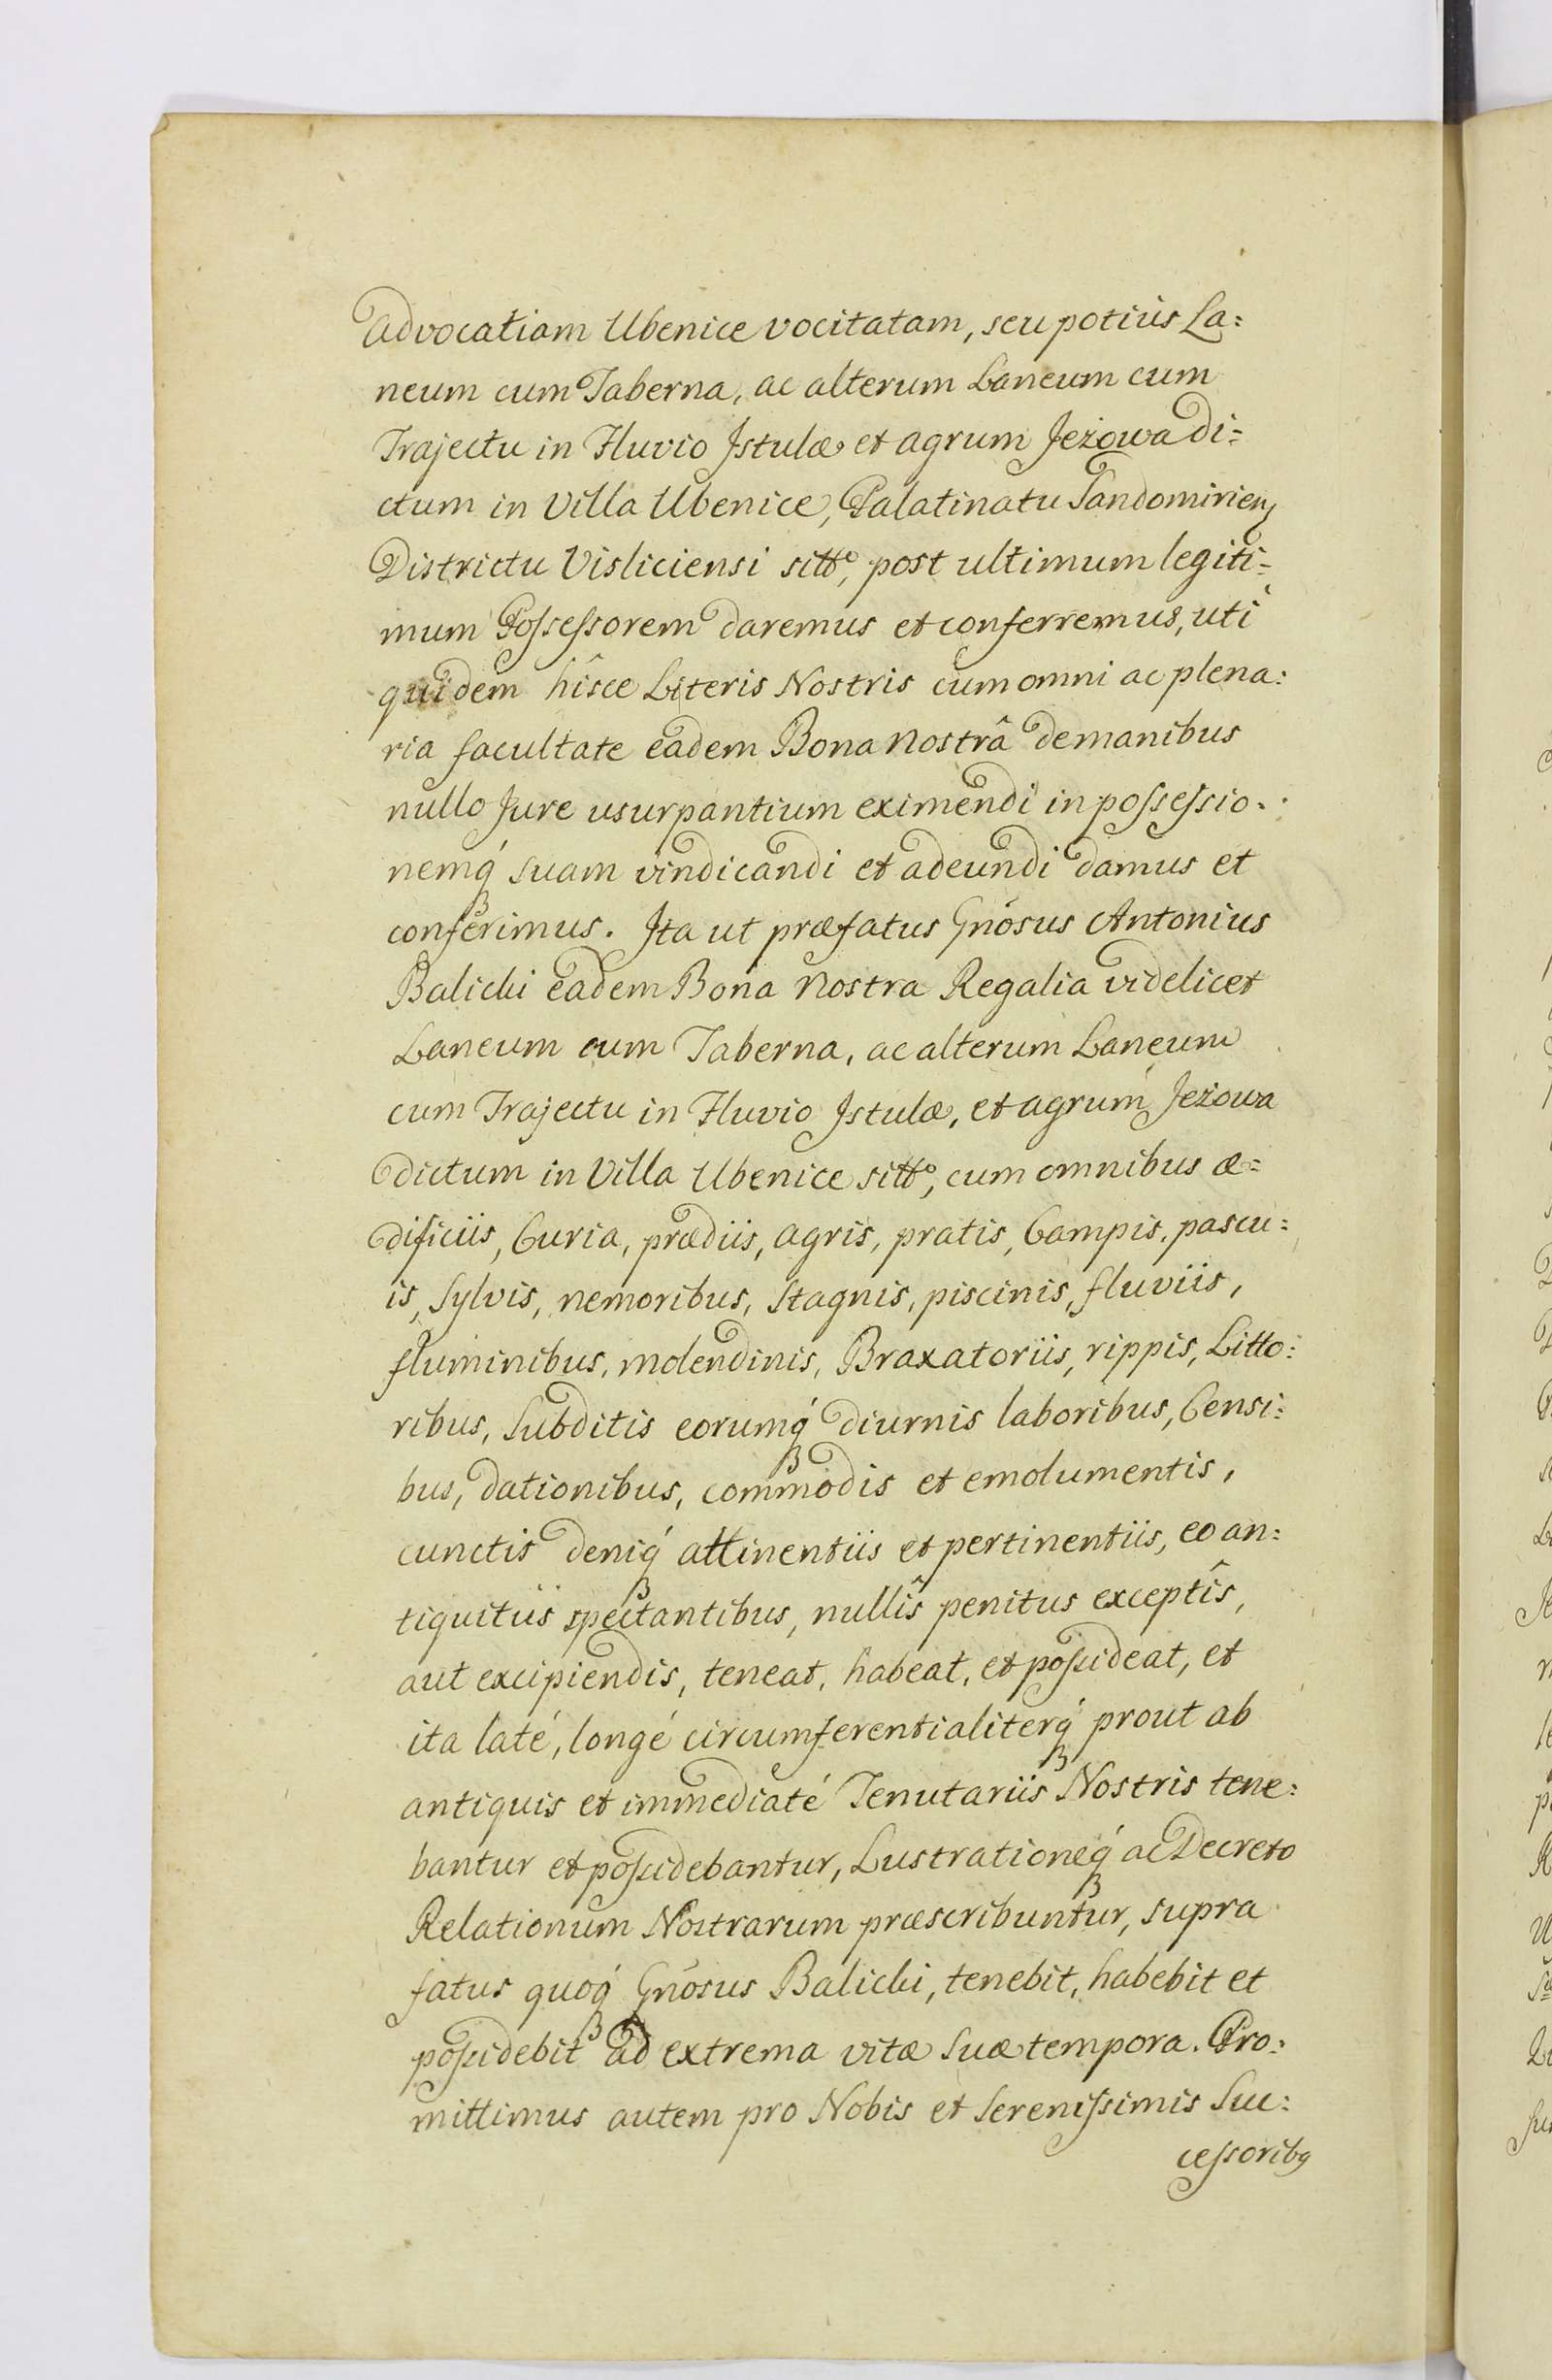 Advocatiam Ubenice vocitatam, seu potiùs La:
neum cum Taberna, ac alterum Laneum cum
Trajectu in Fluvio Istulæ et agrum Jeżowa di:
ctum in Villa Ubenice, Palatinatu Sandomirien,
Districtu Visliciensi sittô, post ultimum legiti:
mum Poſseſsorem daremus et conferremus, uti
quidem hîsce Literis Nostris cum omni ac plena:
ria facultate eadem Bona Nostrâ de manibus
nullo Jure usurpantium eximendi in poſseſsio:
nemq́ suam vindicandi et adeundi damus et
conferimus. Ita ut præfatus Gnosus Antonius
Balicki eadem Bona Nostra Regalia videlicet
Laneum cum Taberna, ac alterum Laneum
cum Trajectu in Fluvio Istulæ, et agrum Jeżowa
dictum in Villa Ubenice sittô, cum omnibus æ:
dificiis, Curia, prædiis, agris, pratis, Campis, pascu:
is, Sylvis, nemoribus, Stagnis, piscinis, fluviis,
fluminibus, molendinis, Braxatoriis, rippis, Litto:
ribus, Subditis eorumq́ diurnis laboribus, Censi:
bus, dationibus, commodis et emolumentis,
cunctis deniq́ attinentiis et pertinentiis, eo an:
tiquitùs spectantibus, nullîs penitus exceptîs,
aut excipiendis, teneat, habeat, et poſsideat, et
ita laté, longé circumferentialiterq́ prout ab
antiquis et immediaté Tenutariis Nostris tene:
bantur et poſsidebantur, Lustrationeq́ ac Decreto
Relationum Nostrarum præscribuntur, supra
fatus quoq́ Gnosus Balicki, tenebit, habebit et
poſsidebit ad extrema vitæ suæ tempora. Pro:
mittimus autem pro Nobis et Sereniſsimis Suc:
ceſsoribꝯ